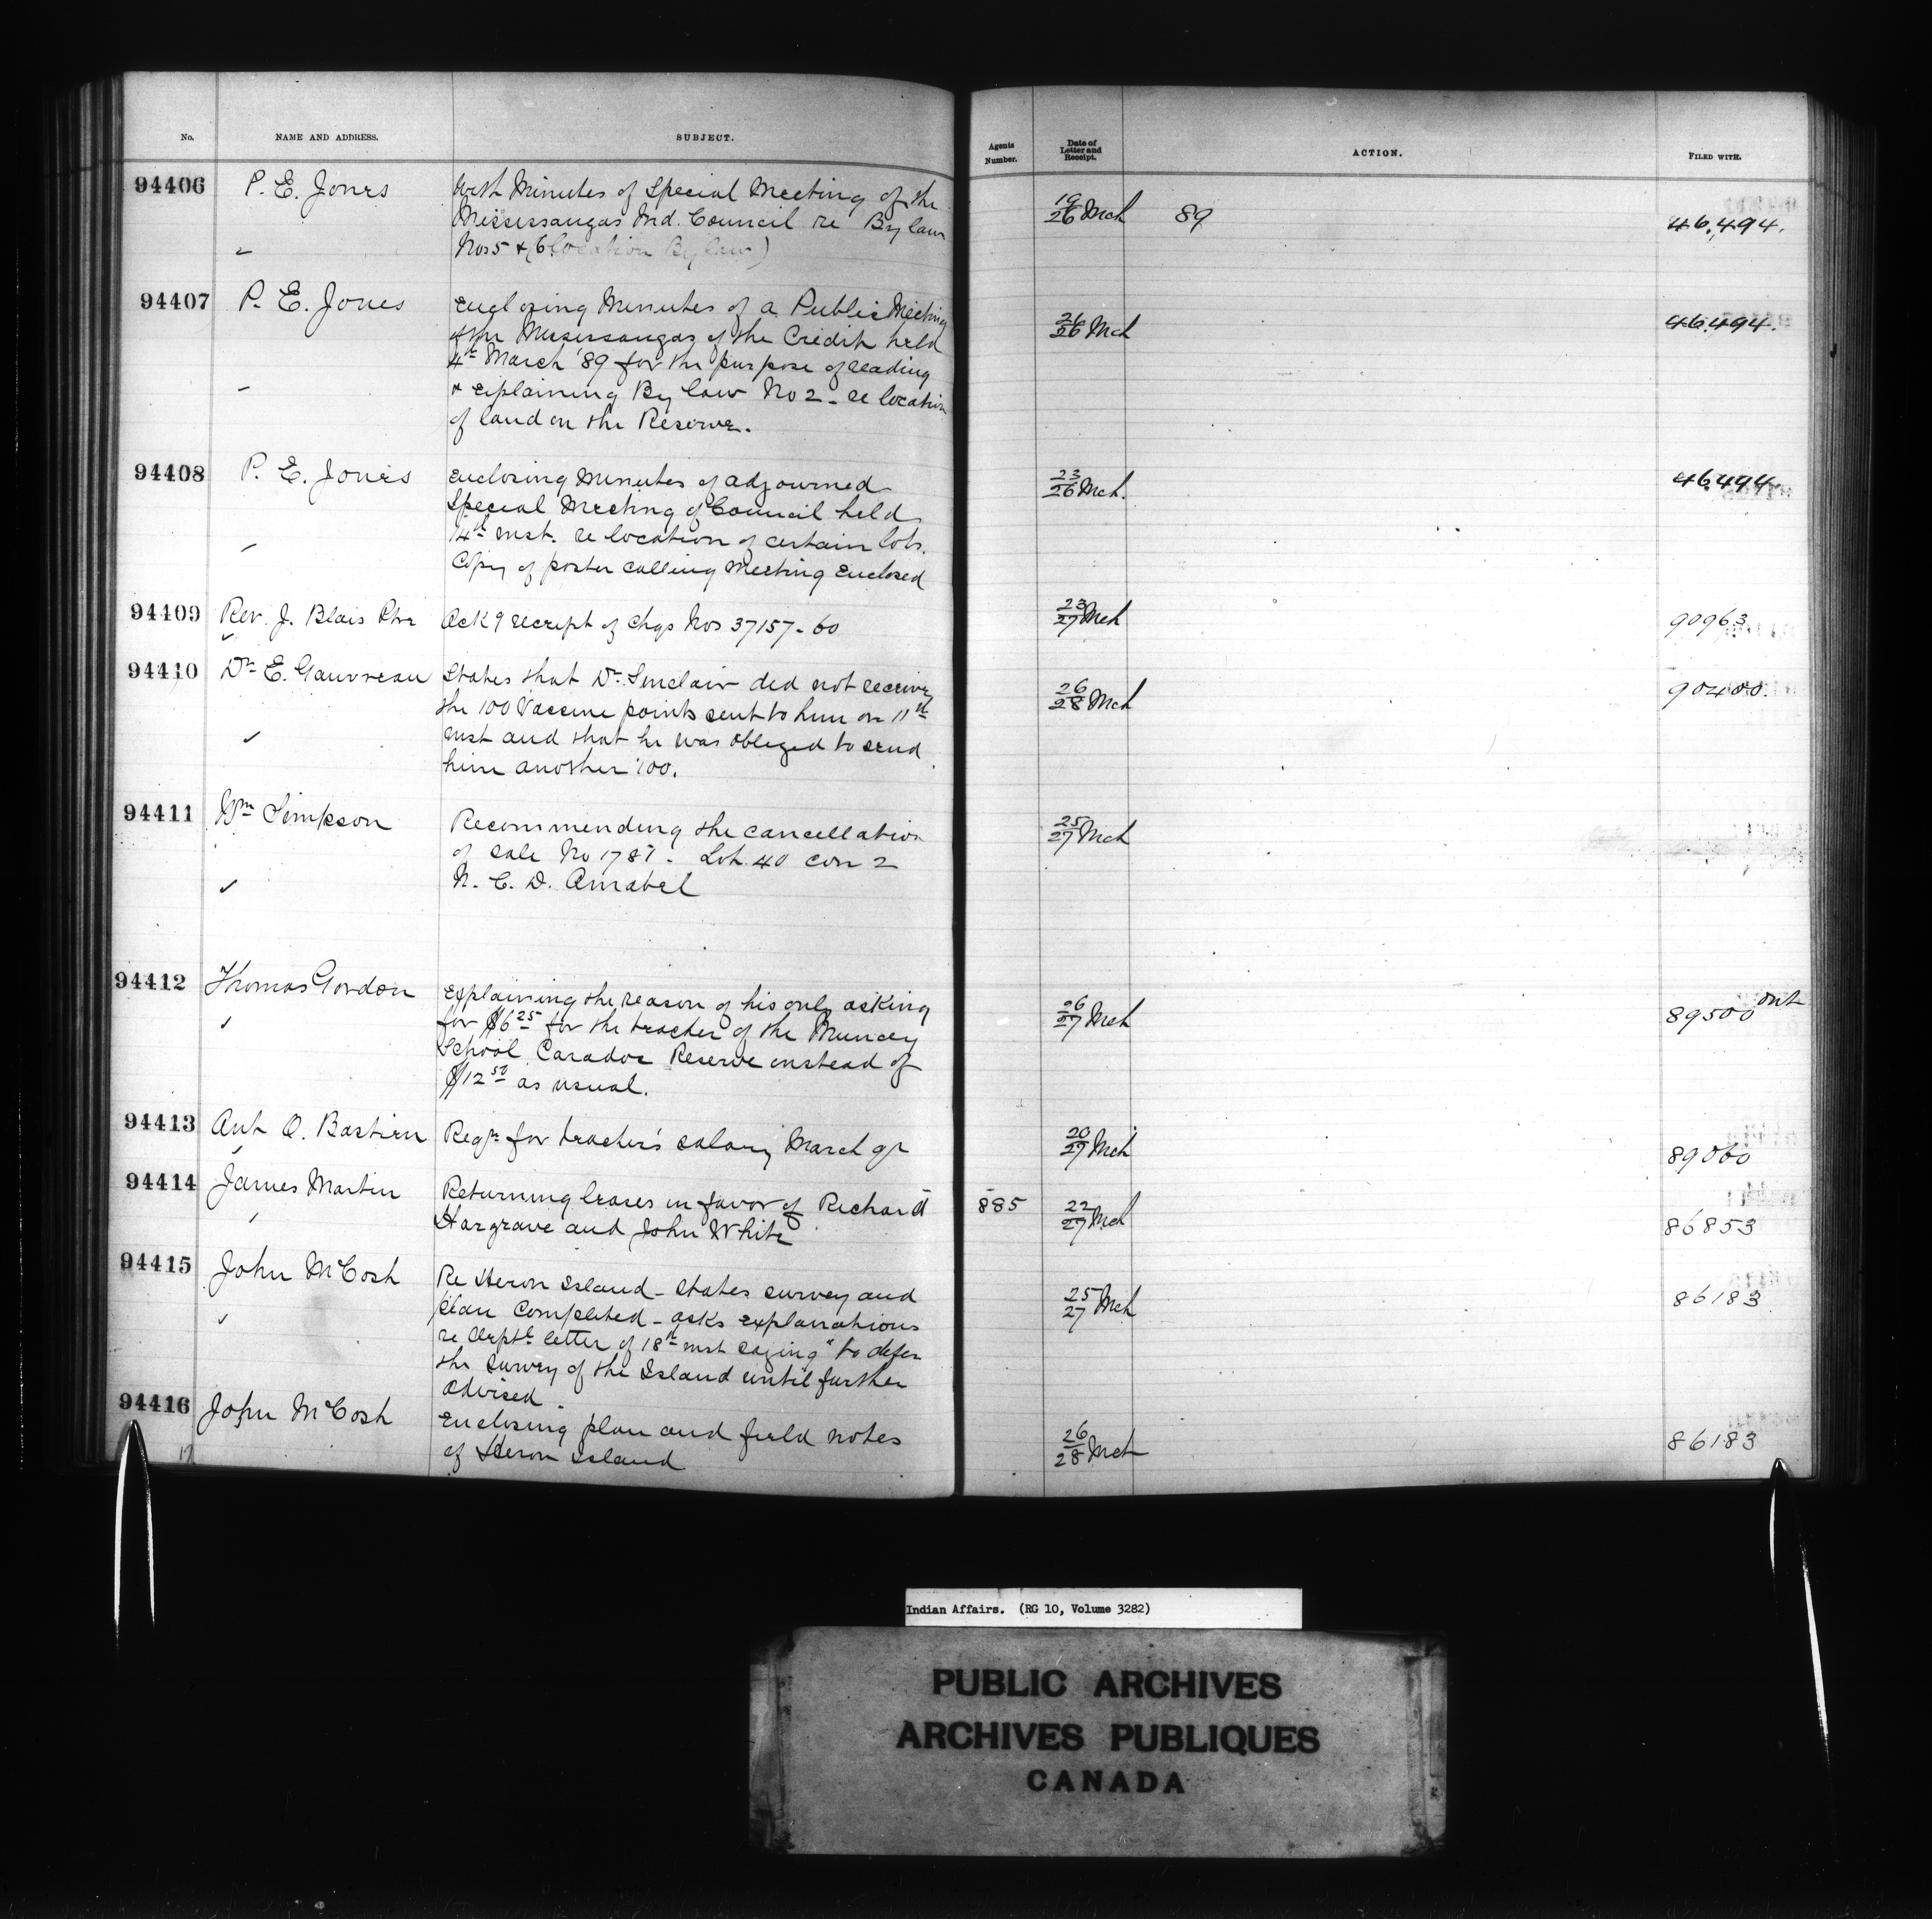 No. NAME AND ADDRESS. SUBJECT. Agents Number. Date of Letter and Receipt. ACTION. FILED WITH.
94406 P. E. Jones With Minutes of Special Meeting of the 19/26 Mch 89 46,494.
Mississaugas Ind. Council re By law
Nos 5 & 6 (location By law)
94407 P. E. Jones Enclosing Minutes of a Public Meeting 26/26 Mch 46.494.
of the Mississaugas of the Credit held
4th March '89 for the purpose of reading
& explaining By law No 2 - re location
of land on the Reserve.
94408 P. E. Jones Enclosing Minutes of adjourned 23/26 Mch. 46494
Special Meeting of Council held
14th inst. re location of certain lots.
Copy of poster calling Meeting Enclosed
94409 Rev. J. Blais Ptre Ackg receipt of chqs Nos 37157-60 23/27 Mch 90963
94410 Dr E. Gauvreau States that Dr Sinclair did not receive 26/28 Mch 90400.
the 100 Vaccine points sent to him on 11th
inst and that he was obliged to send
him another 100.
94411 Wm Simpson Recommending the cancellation 25/27 Mch
of sale No 1787. Lot 40 con 2
N. C. D. Amabel
94412 Thomas Gordon Explaining the reason of his only asking 26/27 Mch 89500 Ont
for $6.25 for the teacher of the Muncey
School Caradoc Reserve instead of
$12.50 as usual.
94413 Ant O. Bastien Reqn for teacher's salary March qr 20/27 Mch 89060
94414 James Martin Returning leases in favor of Richard 885 22/27 Mch 86853
Hargrave and John White
94415 John McCosh Re Heron Island - States survey and 25/27 Mch 86183
plan Completed - asks explanations
re Deptl letter of 18th inst saying "to defer
the survey of the Island until further
advised
94416 John McCosh Enclosing plan and field notes 26/28 Mch 86183
of Heron Island
Indian Affairs. (RG 10, Volume 3282)
PUBLIC ARCHIVES
ARCHIVES PUBLIQUES
CANADA